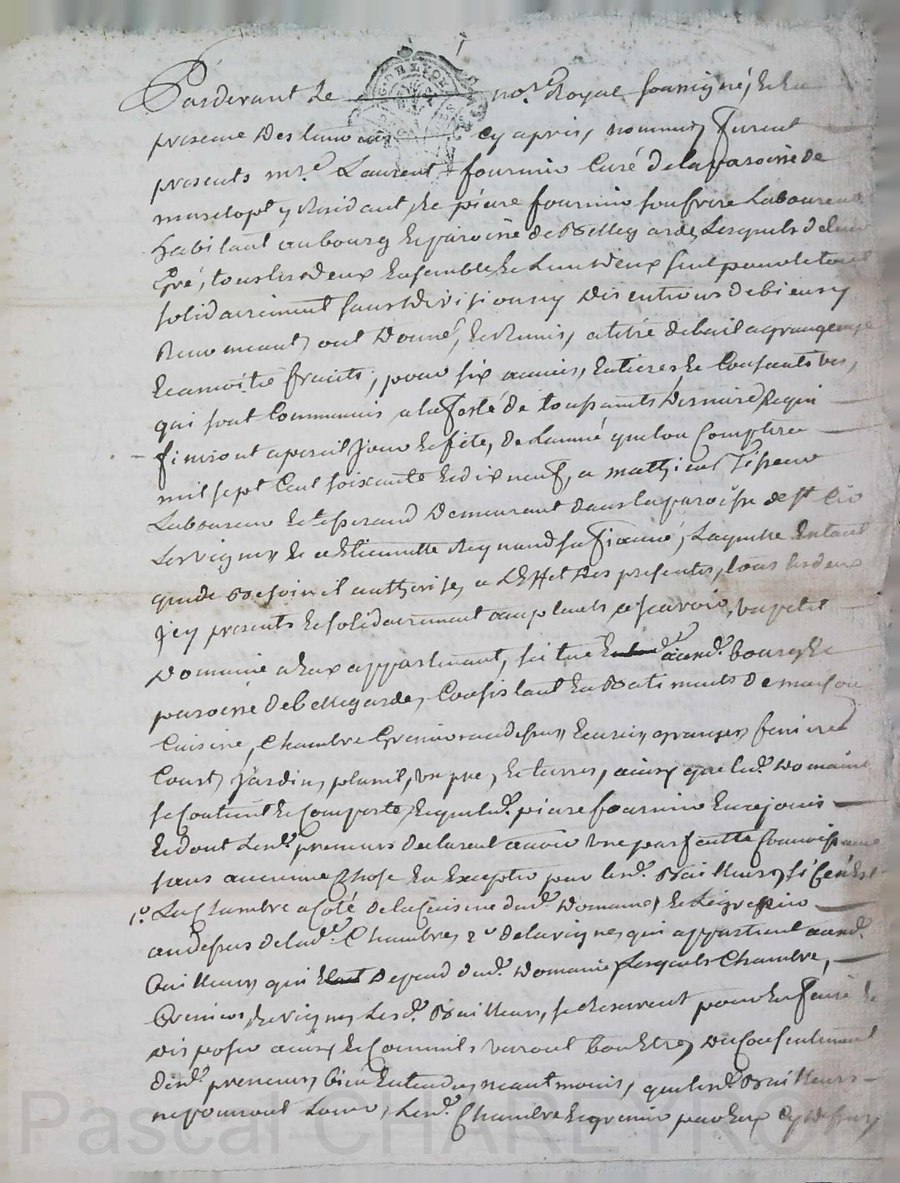 Pardevant Le nore Royal soussigné, Et En
presence Des temoins cy apres, nommés furent
presents mre Laurent fournier Curé de la paroisse de
y Residant, Et piere fournier son frere Laboureur
habitant au bourg Et paroisse de Bellegarde, Lesquels de leur
gré, tous les deux Ensemble Et L'un d'eux seul pour le tout
solidairement sans division ny Discution de biens y
Renonceant, ont Donné, Et Remis, a titre de bail a grangeage
Et a moitié fruits, pour six années, Entieres Et Consecutives,
qui sont Commencés a la feste de toussaints Derniere, Et qui
finiront a pareil Jour Et fete, de L'année que l'on Comptera
mil sept Cent soixante Et dix neuf, a mathieu
Laboureur Demeurant dans la paroisse de st Cir
Les vignes Et a Etiennette Reynaud sa fiancée, Laquelle En tant
que de Besoin il authorise, a L'Effet des presentes, tous les deux
Icy presents Et solidairement acceptants, a scavoir, un petit
Domaine a Eux appartenant, situé aud. bourg Et
paroisse de bellegarde, Consistant En Batiments De maison
Cuisine, Chambre Grenier au dessus, Ecuries, granges, feniere
Court, Jardin, un pré, Et terres, ainsy que led. Domaine
se Contient Et Comporte, Et que led. piere fournier En a joui
Et dont Lesd. preneurs declarent avoir une parfaitte Connoissance
sans aucune Chose En Excepter par lesd. Bailleurs, si Ce n'Est
1o. La Chambre a Coté de la Cuisine dud. Domaine, Et Le grenier
au dessus de lad. Chambre, 2o de la vigne, qui appartient auxd.
Bailleurs, qui Depend dud. Domaine, Lesquels Chambre,
Grenier, Et vigne, Lesd. Bailleurs, se Reservent pour En faire Et
Disposer ainsy Et Comme ils verront bon Etre, Du Consentement
desd. preneurs, bien Entendu, neantmoins, que lesd. Bailleurs
ne pourront Louer, Lesd. Chambre Et grenier par Eux
Pascal CHAREYRON